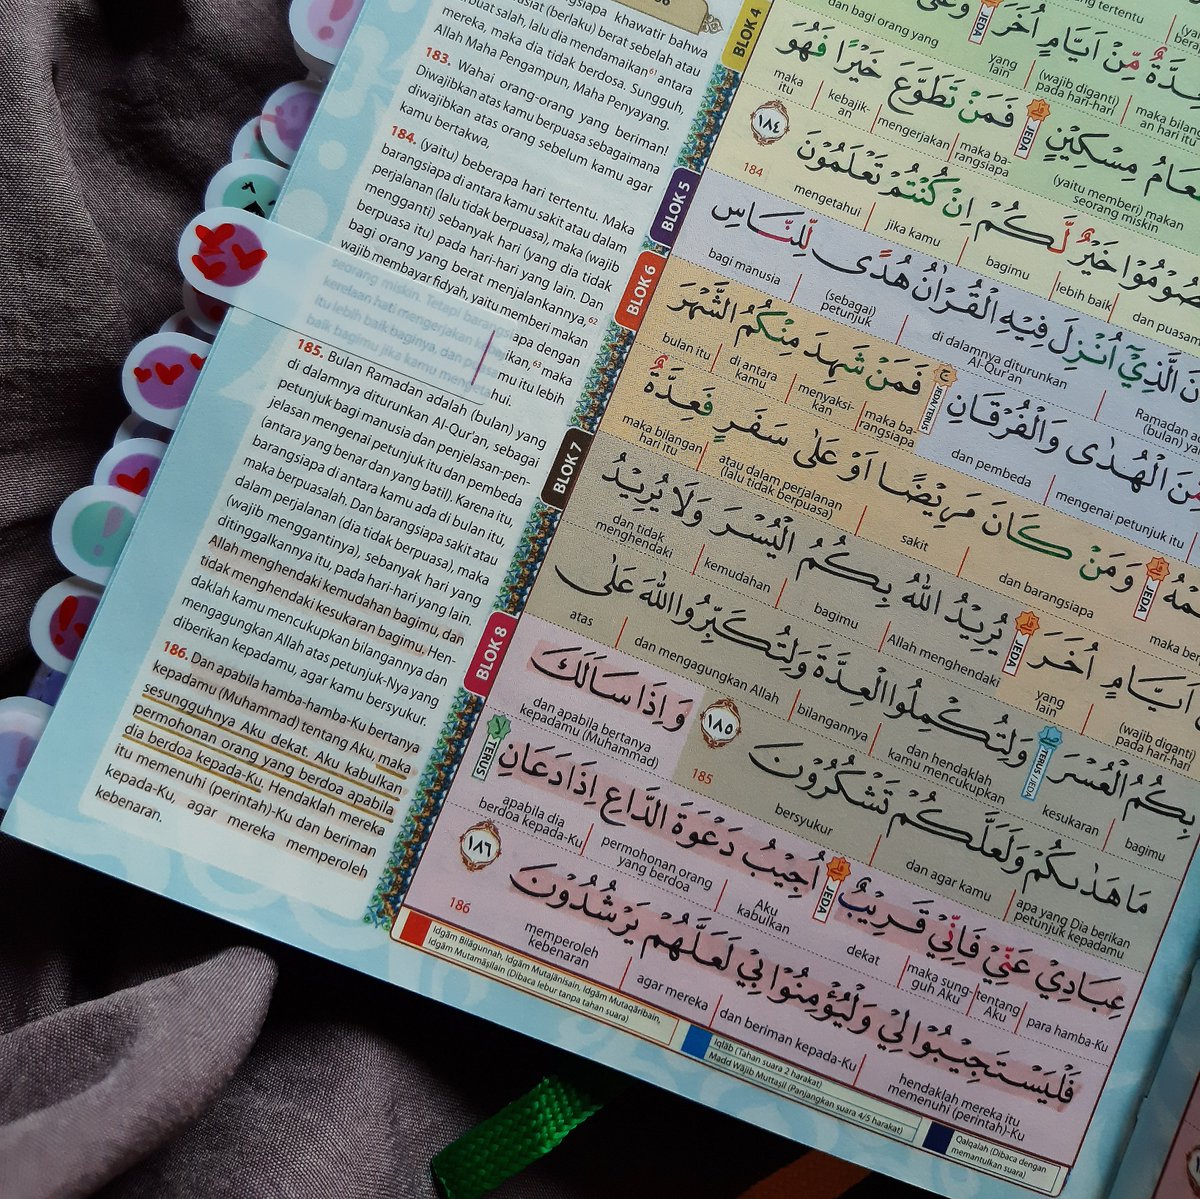 ngsiapa khawatir bahwa
(berlaku) berat sebelah atau
buat salah, lalu dia mendamaikan⁶¹ antara
mereka, maka dia tidak berdosa. Sungguh,
Allah Maha Pengampun, Maha Penyayang.
183. Wahai orang-orang yang beriman!
Diwajibkan atas kamu berpuasa sebagaimana
diwajibkan atas orang sebelum kamu agar
kamu bertakwa,
184. (yaitu) beberapa hari tertentu. Maka
barangsiapa di antara kamu sakit atau dalam
perjalanan (lalu tidak berpuasa), maka (wajib
mengganti) sebanyak hari (yang dia tidak
berpuasa itu) pada hari-hari yang lain. Dan
bagi orang yang berat menjalankannya,⁶²
wajib membayar fidyah, yaitu memberi makan
seorang miskin. Tetapi barangsiapa dengan
kerelaan hati mengerjakan kebajikan,⁶³ maka
itu lebih baik baginya, dan puasamu itu lebih
baik bagimu jika kamu mengetahui.
185. Bulan Ramadan adalah (bulan) yang
di dalamnya diturunkan Al-Qur'an, sebagai
petunjuk bagi manusia dan penjelasan-pen-
jelasan mengenai petunjuk itu dan pembeda
(antara yang benar dan yang batil). Karena itu,
barangsiapa di antara kamu ada di bulan itu,
maka berpuasalah. Dan barangsiapa sakit atau
dalam perjalanan (dia tidak berpuasa), maka
(wajib menggantinya), sebanyak hari yang
ditinggalkannya itu, pada hari-hari yang lain.
Allah menghendaki kemudahan bagimu, dan
tidak menghendaki kesukaran bagimu. Hen-
daklah kamu mencukupkan bilangannya dan
mengagungkan Allah atas petunjuk-Nya yang
diberikan kepadamu, agar kamu bersyukur.
186. Dan apabila hamba-hamba-Ku bertanya
kepadamu (Muhammad) tentang Aku, maka
sesungguhnya Aku dekat. Aku kabulkan
permohonan orang yang berdoa apabila
dia berdoa kepada-Ku. Hendaklah mereka
itu memenuhi (perintah)-Ku dan beriman
kepada-Ku, agar mereka memperoleh
kebenaran.
BLOK 4
BLOK 5
BLOK 6
BLOK 7
BLOK 8
tertentu
dan bagi orang yang
مِّنْ اَيَّامٍ اُخَرَ ۗ
JEDA
maka bilangan hari itu
(wajib diganti) pada hari-hari
yang lain
مِسْكِيْنٍ ۗ فَمَنْ تَطَوَّعَ خَيْرًا فَهُوَ
(yaitu memberi) makan seorang miskin
JEDA
maka ba-rangsiapa
mengerjakan
kebajik-an
maka itu
خَيْرٌ لَّكُمْ اِنْ كُنْتُمْ تَعْلَمُوْنَ ١٨٤
dan puasa
lebih baik
bagimu
jika kamu
mengetahui
184
الَّذِيْٓ اُنْزِلَ فِيْهِ الْقُرْاٰنُ هُدًى لِّلنَّاسِ
di dalamnya diturunkan Al-Qur'an
(sebagai) petunjuk
bagi manusia
مِّنَ الْهُدٰى وَالْفُرْقَانِ ۚ فَمَنْ شَهِدَ مِنْكُمُ الشَّهْرَ
mengenai petunjuk itu
dan pembeda
JEDA/TERUS
maka ba-rangsiapa
menyaksi-kan
di antara kamu
bulan itu
وَمَنْ كَانَ مَرِيْضًا اَوْ عَلٰى سَفَرٍ فَعِدَّةٌ
JEDA
dan barangsiapa
sakit
atau dalam perjalanan (lalu tidak berpuasa)
maka bilangan hari itu
اَيَّامٍ اُخَرَ ۗ يُرِيْدُ اللّٰهُ بِكُمُ الْيُسْرَ وَلَا يُرِيْدُ
(wajib diganti) pada hari-hari
yang lain
JEDA
Allah menghendaki
bagimu
kemudahan
dan tidak menghendaki
بِكُمُ الْعُسْرَ ۖ وَلِتُكْمِلُوا الْعِدَّةَ وَلِتُكَبِّرُوا اللّٰهَ عَلٰى
bagimu
kesukaran
TERUS/JEDA
dan hendaklah kamu mencukupkan
bilangannya
dan mengagungkan Allah
atas
مَا هَدٰىكُمْ وَلَعَلَّكُمْ تَشْكُرُوْنَ ١٨٥ وَاِذَا سَاَلَكَ
apa yang Dia berikan petunjuk kepadamu
dan agar kamu
bersyukur
185
dan apabila bertanya kepadamu (Muhammad)
عِبَادِيْ عَنِّيْ فَاِنِّيْ قَرِيْبٌ ۗ اُجِيْبُ دَعْوَةَ الدَّاعِ اِذَا دَعَانِ
para hamba-Ku
tentang Aku
maka sung-guh Aku
dekat
JEDA
Aku kabulkan
permohonan orang yang berdoa
apabila dia berdoa kepada-Ku
TERUS
فَلْيَسْتَجِيْبُوْا لِيْ وَلْيُؤْمِنُوْا بِيْ لَعَلَّهُمْ يَرْشُدُوْنَ ١٨٦
hendaklah mereka itu memenuhi (perintah)-Ku
dan beriman kepada-Ku
agar mereka
memperoleh kebenaran
186
Idgām Bilāgunnah, Idgām Mutajānisain, Idgām Mutaqāribain,
Idgām Mutamāṡilain (Dibaca lebur tanpa tahan suara)
Iqlāb (Tahan suara 2 harakat)
Madd Wājib Muttaṣil (Panjangkan suara 4/5 harakat)
Qalqalah (Dibaca dengan
memantulkan suara)